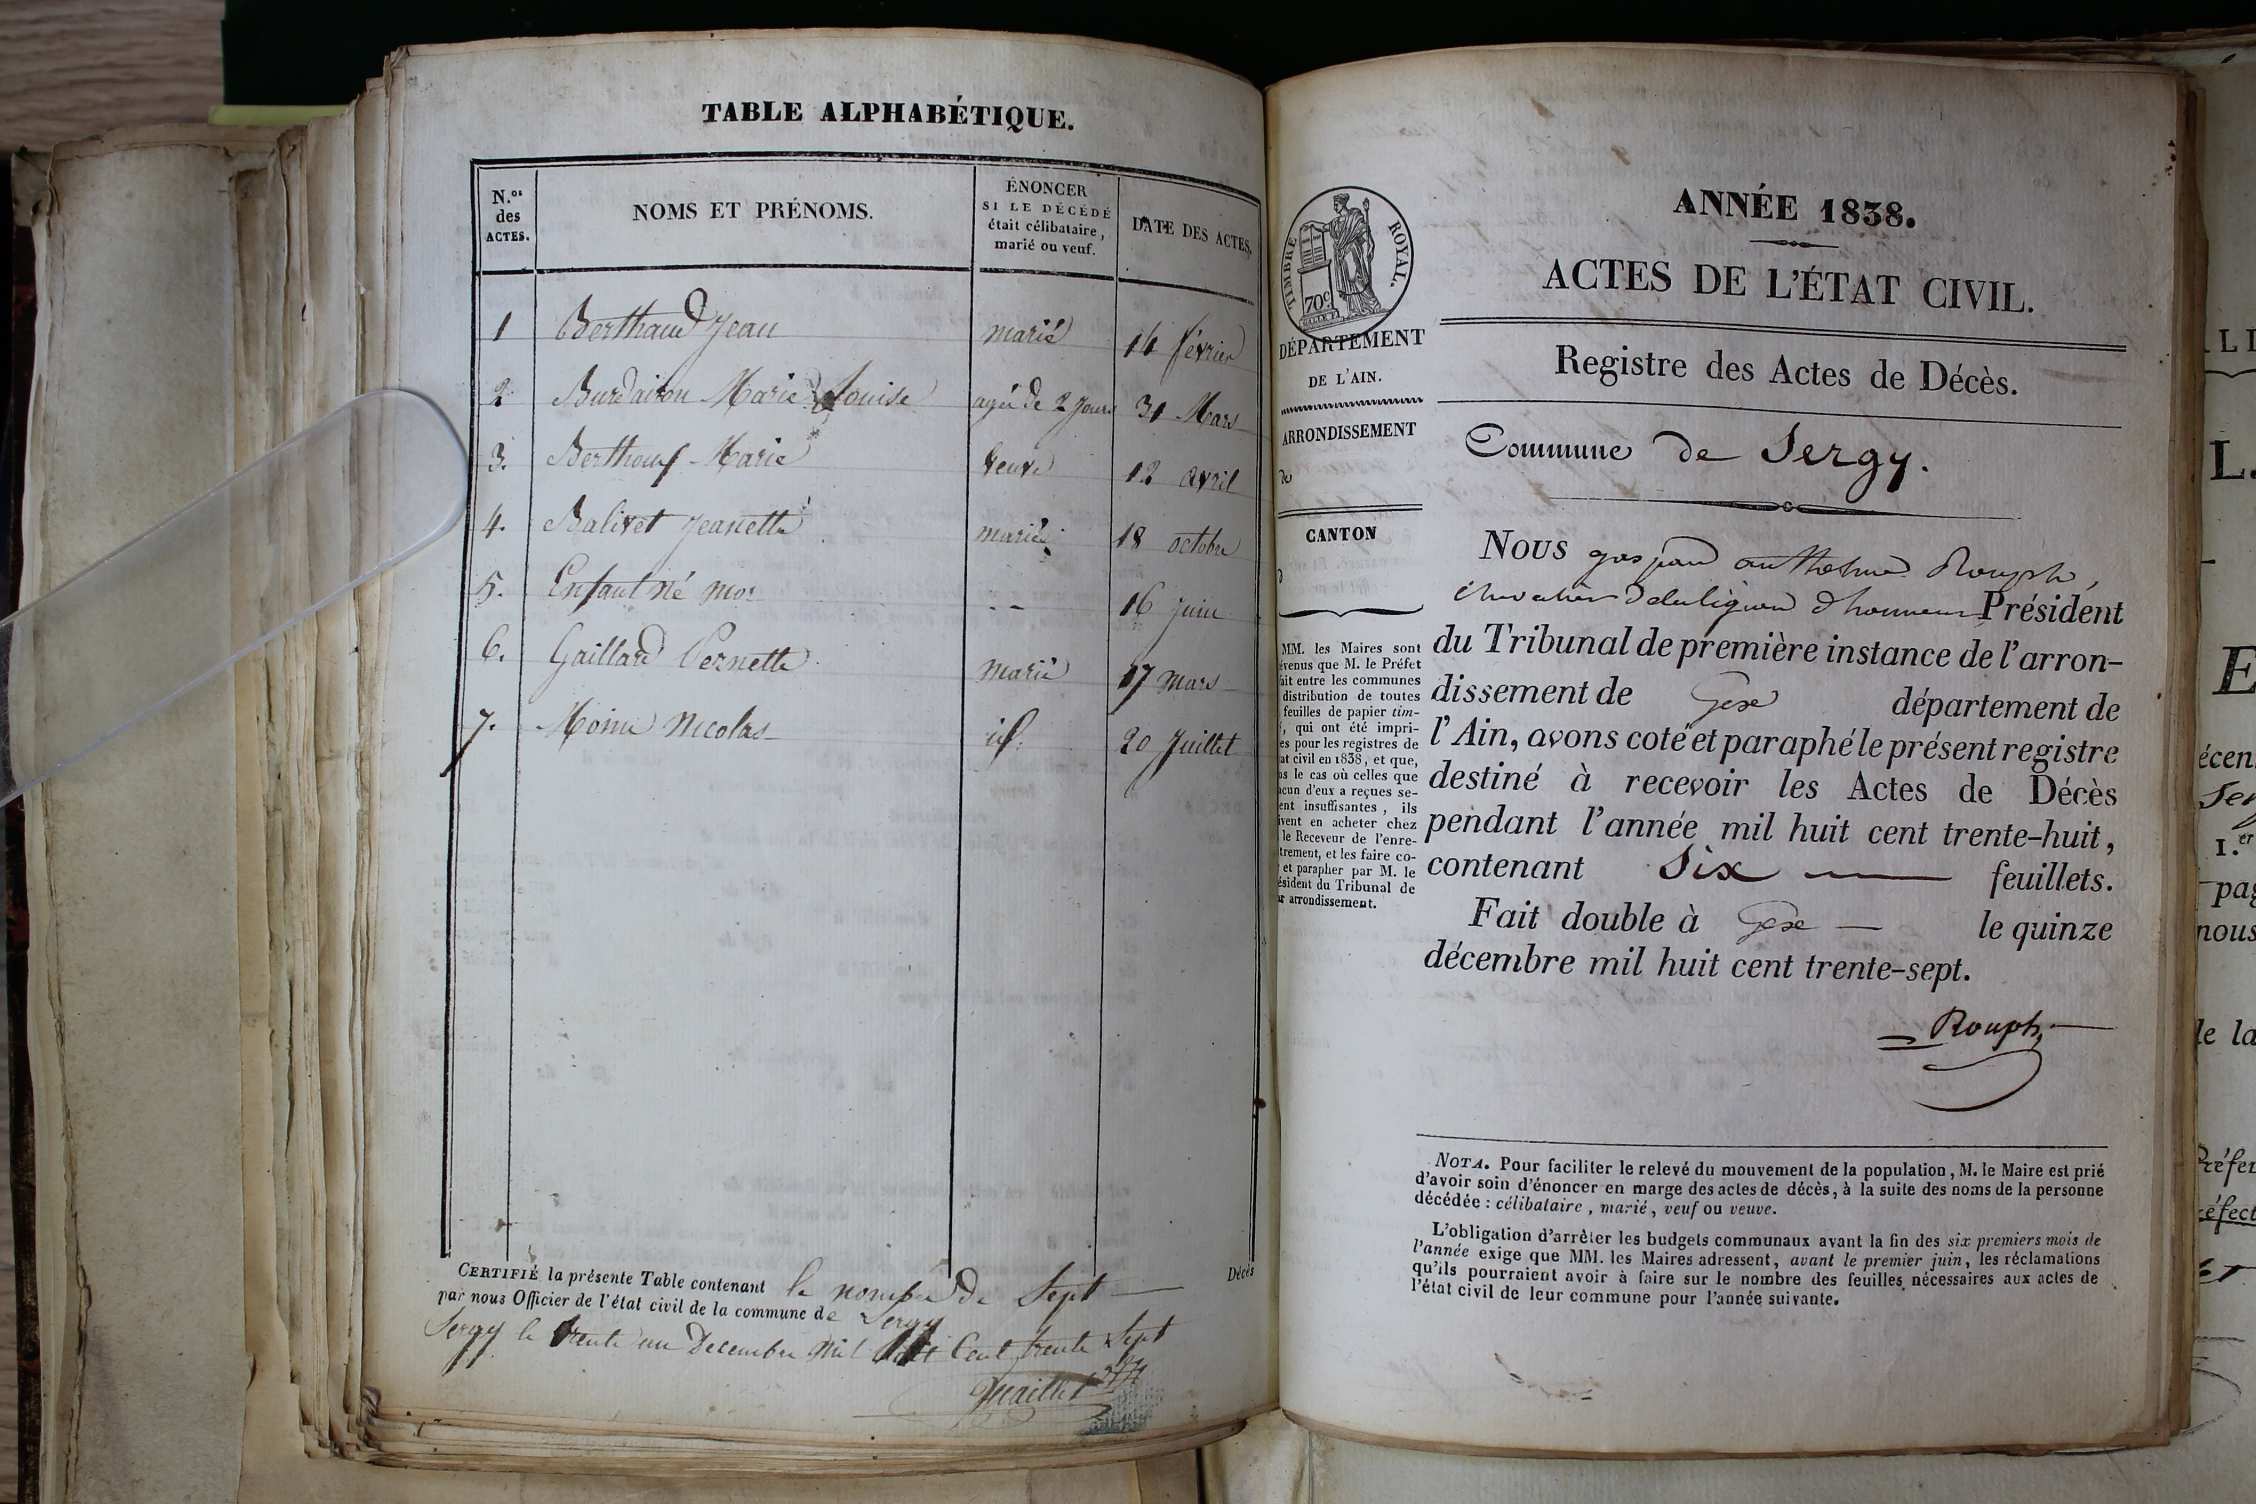 TABLE ALPHABÉTIQUE.
N.os des ACTES.
NOMS ET PRÉNOMS.
ÉNONCER
SI LE DÉCÉDÉ
était célibataire,
marié ou veuf.
DATE DES ACTES.
1 Berthaud Jean marié 14 février
2 Burdairon Marie Louise agée de 2 Jours 31 Mars
3. Marie Veuve 12 avril
4. Balivet Jeanette mariée 18 octobre
5. Enfant né mor -- 16 Juin
6. Gaillard Pernette marié 17 mars
7. Moine Nicolas id. 20 Juillet
CERTIFIÉ la présente Table contenant le nombre de Sept Décès
par nous Officier de l'état civil de la commune de Sergy
Sergy le trente un Decembre mil huit Cent trente Sept
ANNÉE 1838.
ACTES DE L'ÉTAT CIVIL.
TIMBRE ROYAL.
70c
DÉPARTEMENT
DE L'AIN.
ARRONDISSEMENT
de
CANTON
d
MM. les Maires sont
venus que M. le Préfet
ait entre les communes
distribution de toutes
feuilles de papier tim-
, qui ont été impri-
es pour les registres de
at civil en 1838, et que,
ns le cas où celles que
acun d'eux a reçues se-
ent insuffisantes, ils
ivent en acheter chez
le Receveur de l'enre-
trement, et les faire co-
et parapher par M. le
ésident du Tribunal de
ur arrondissement.
Registre des Actes de Décès.
Commune de Sergy.
Nous gaspard anthelme Rouph,
chevalier de la légion d'honneur Président
du Tribunal de première instance de l'arron-
dissement de Gex département de
l'Ain, avons coté et paraphé le présent registre
destiné à recevoir les Actes de Décès
pendant l'année mil huit cent trente-huit,
contenant Six feuillets.
Fait double à Gex — le quinze
décembre mil huit cent trente-sept.
Rouph
NOTA. Pour faciliter le relevé du mouvement de la population, M. le Maire est prié
d'avoir soin d'énoncer en marge des actes de décès, à la suite des noms de la personne
décédée : célibataire, marié, veuf ou veuve.
L'obligation d'arrêter les budgets communaux avant la fin des six premiers mois de
l'année exige que MM. les Maires adressent, avant le premier juin, les réclamations
qu'ils pourraient avoir à faire sur le nombre des feuilles nécessaires aux actes de
l'état civil de leur commune pour l'année suivante.
L.
E
écen
Ser
1.er
pag
nous
le la
Préfer
éfect